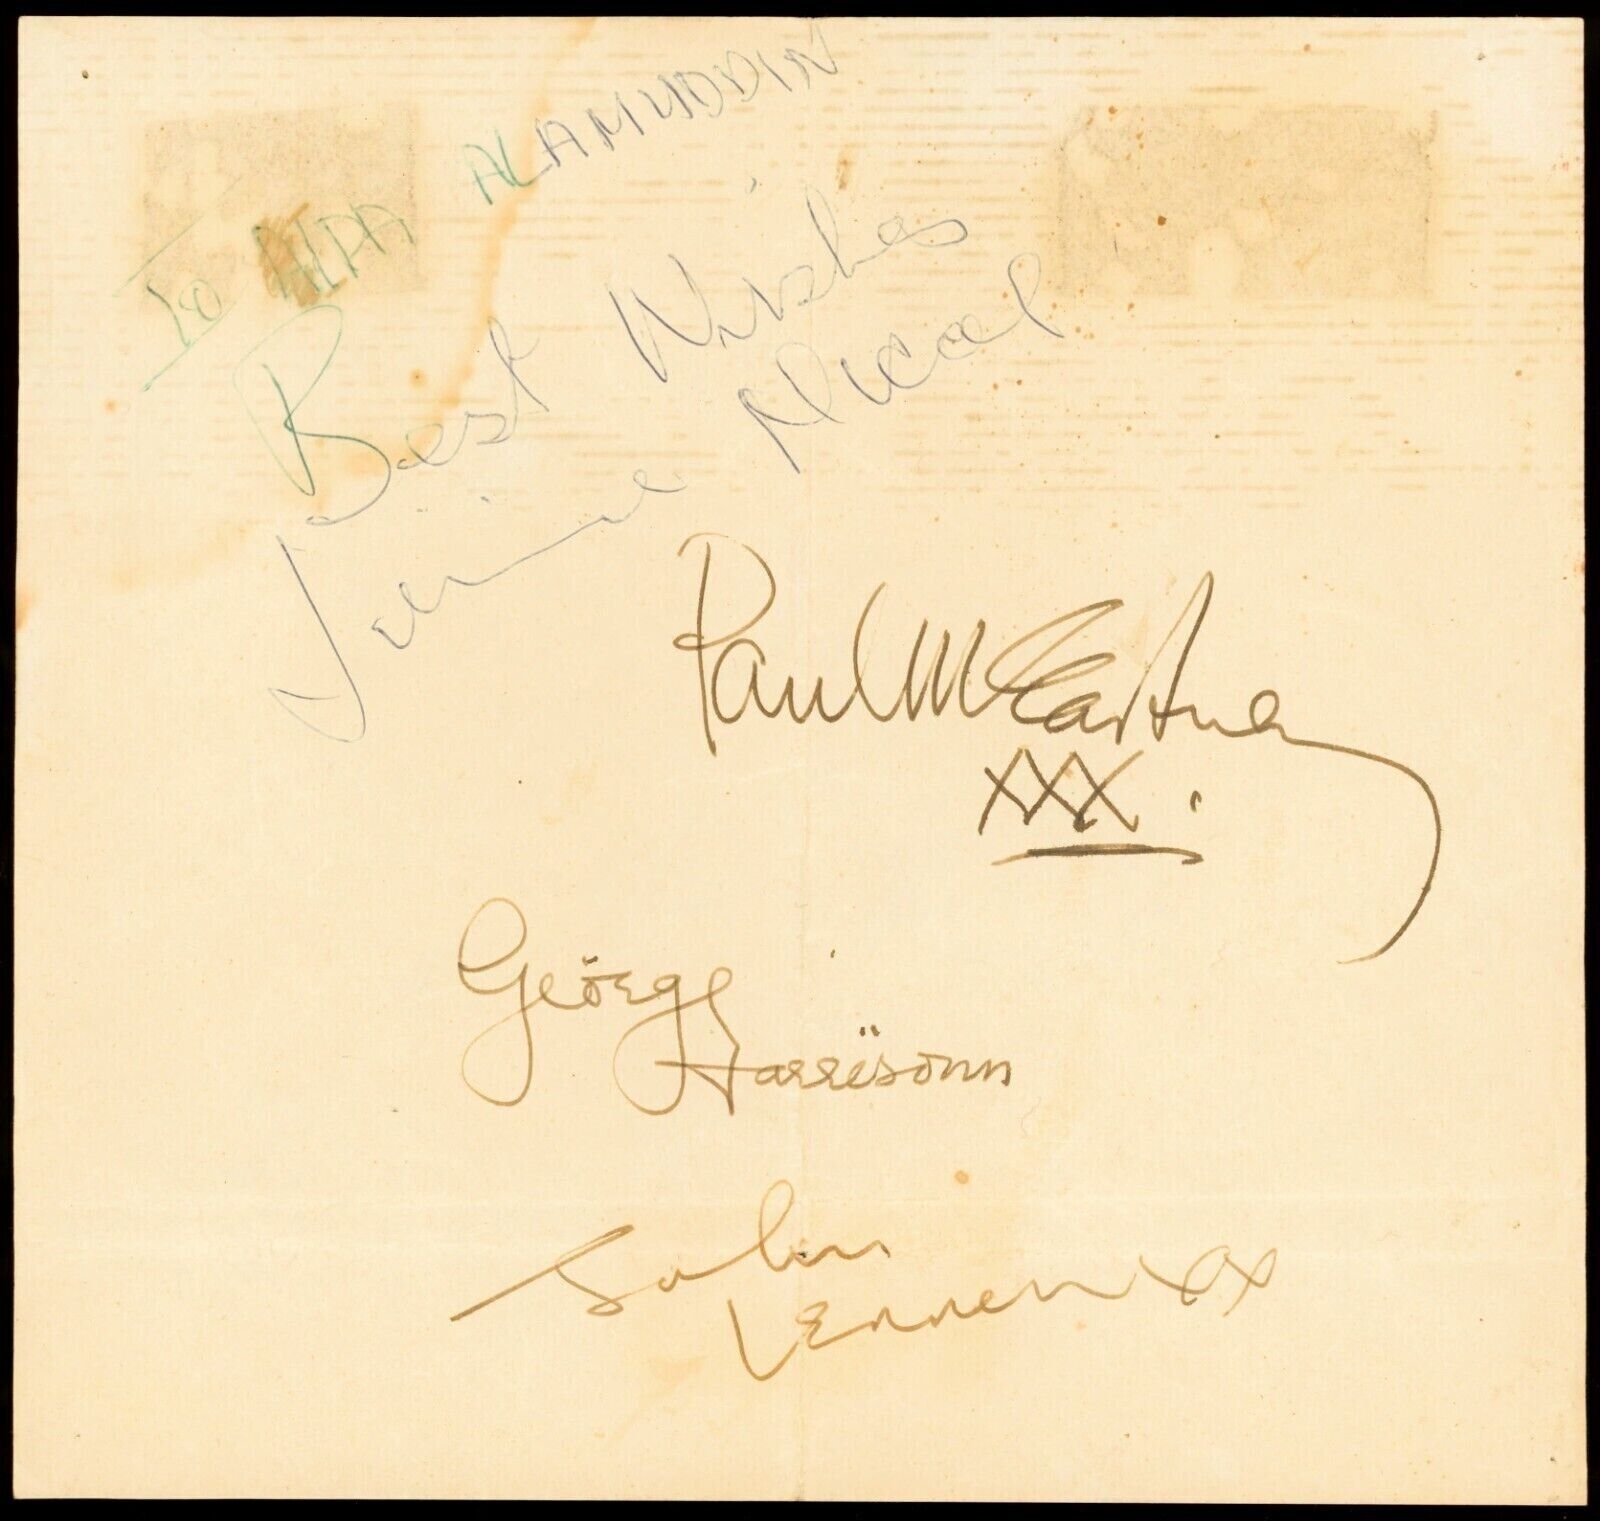 To AIDA ALAMUDDIN
Best Wishes
Jimmie Nicol
Paul McCartney
XXX.
Geörge
Harrësonn
John
Lennon xx